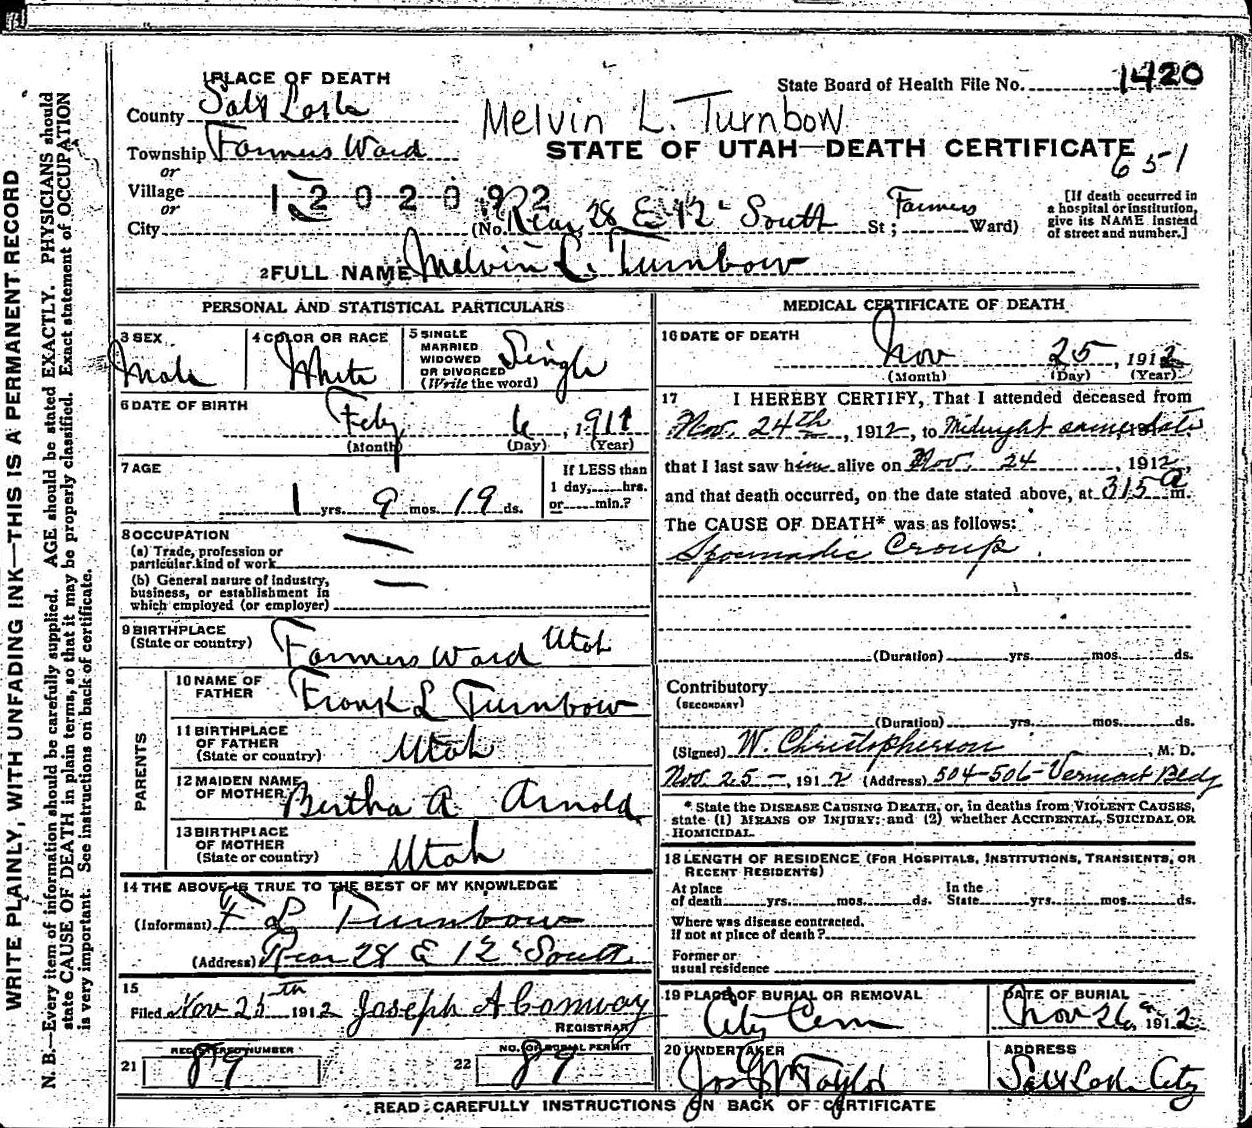 WRITE PLAINLY, WITH UNFADING INK—THIS IS A PERMANENT RECORD
N. B.—Every item of information should be carefully supplied. AGE should be stated EXACTLY. PHYSICIANS should
state CAUSE OF DEATH in plain terms, so that it may be properly classified. Exact statement of OCCUPATION
is very important. See instructions on back of certificate.
1 PLACE OF DEATH
State Board of Health File No. 1420
County Salt Lake
Melvin L. Turnbow
Township Farmers Ward
STATE OF UTAH—DEATH CERTIFICATE
651
or
Village
1202092
or
City
(No. Rear 28 E 12" South St; Farmers Ward)
[If death occurred in
a hospital or institution,
give its NAME instead
of street and number.]
2 FULL NAME Melvin L. Turnbow
PERSONAL AND STATISTICAL PARTICULARS
3 SEX
Male
4 COLOR OR RACE
White
5 SINGLE
MARRIED
WIDOWED
OR DIVORCED
(Write the word)
Single
6 DATE OF BIRTH
Feby 6, 1911
(Month) (Day) (Year)
7 AGE
1 yrs. 9 mos. 19 ds.
If LESS than
1 day, hrs.
or min.?
8 OCCUPATION
(a) Trade, profession or
particular kind of work
(b) General nature of industry,
business, or establishment in
which employed (or employer)
9 BIRTHPLACE
(State or country)
Farmers Ward Utah
PARENTS
10 NAME OF
FATHER
Frank L Turnbow
11 BIRTHPLACE
OF FATHER
(State or country)
Utah
12 MAIDEN NAME
OF MOTHER
Bertha A. Arnold
13 BIRTHPLACE
OF MOTHER
(State or country)
Utah
14 THE ABOVE IS TRUE TO THE BEST OF MY KNOWLEDGE
(Informant) F L Turnbow
(Address) Rear 28 E 12" South
15
Filed Nov 25th 1912 Joseph A Conway
REGISTRAR
21 REGISTERED NUMBER
89
22 NO. OF BURIAL PERMIT
89
MEDICAL CERTIFICATE OF DEATH
16 DATE OF DEATH
Nov 25, 1912
(Month) (Day) (Year)
17 I HEREBY CERTIFY, That I attended deceased from
Nov. 24th, 1912, to Midnight same date
that I last saw him alive on Nov. 24, 1912,
and that death occurred, on the date stated above, at 315 a m.
The CAUSE OF DEATH* was as follows:
Spasmadic Croup.
(Duration) yrs. mos. ds.
Contributory
(SECONDARY)
(Duration) yrs. mos. ds.
(Signed) W. Christopherson, M. D.
Nov. 25-, 1912 (Address) 504-506-Vermont Bldg
* State the DISEASE CAUSING DEATH, or, in deaths from VIOLENT CAUSES,
state (1) MEANS OF INJURY; and (2) whether ACCIDENTAL, SUICIDAL OR
HOMICIDAL.
18 LENGTH OF RESIDENCE (FOR HOSPITALS, INSTITUTIONS, TRANSIENTS, OR
RECENT RESIDENTS)
At place
of death yrs. mos. ds.
In the
State yrs. mos. ds.
Where was disease contracted,
If not at place of death?
Former or
usual residence
19 PLACE OF BURIAL OR REMOVAL
City Cem
DATE OF BURIAL
Nov 26, 1912
20 UNDERTAKER
Jos Wm Taylor
ADDRESS
Salt Lake City
READ CAREFULLY INSTRUCTIONS ON BACK OF CERTIFICATE